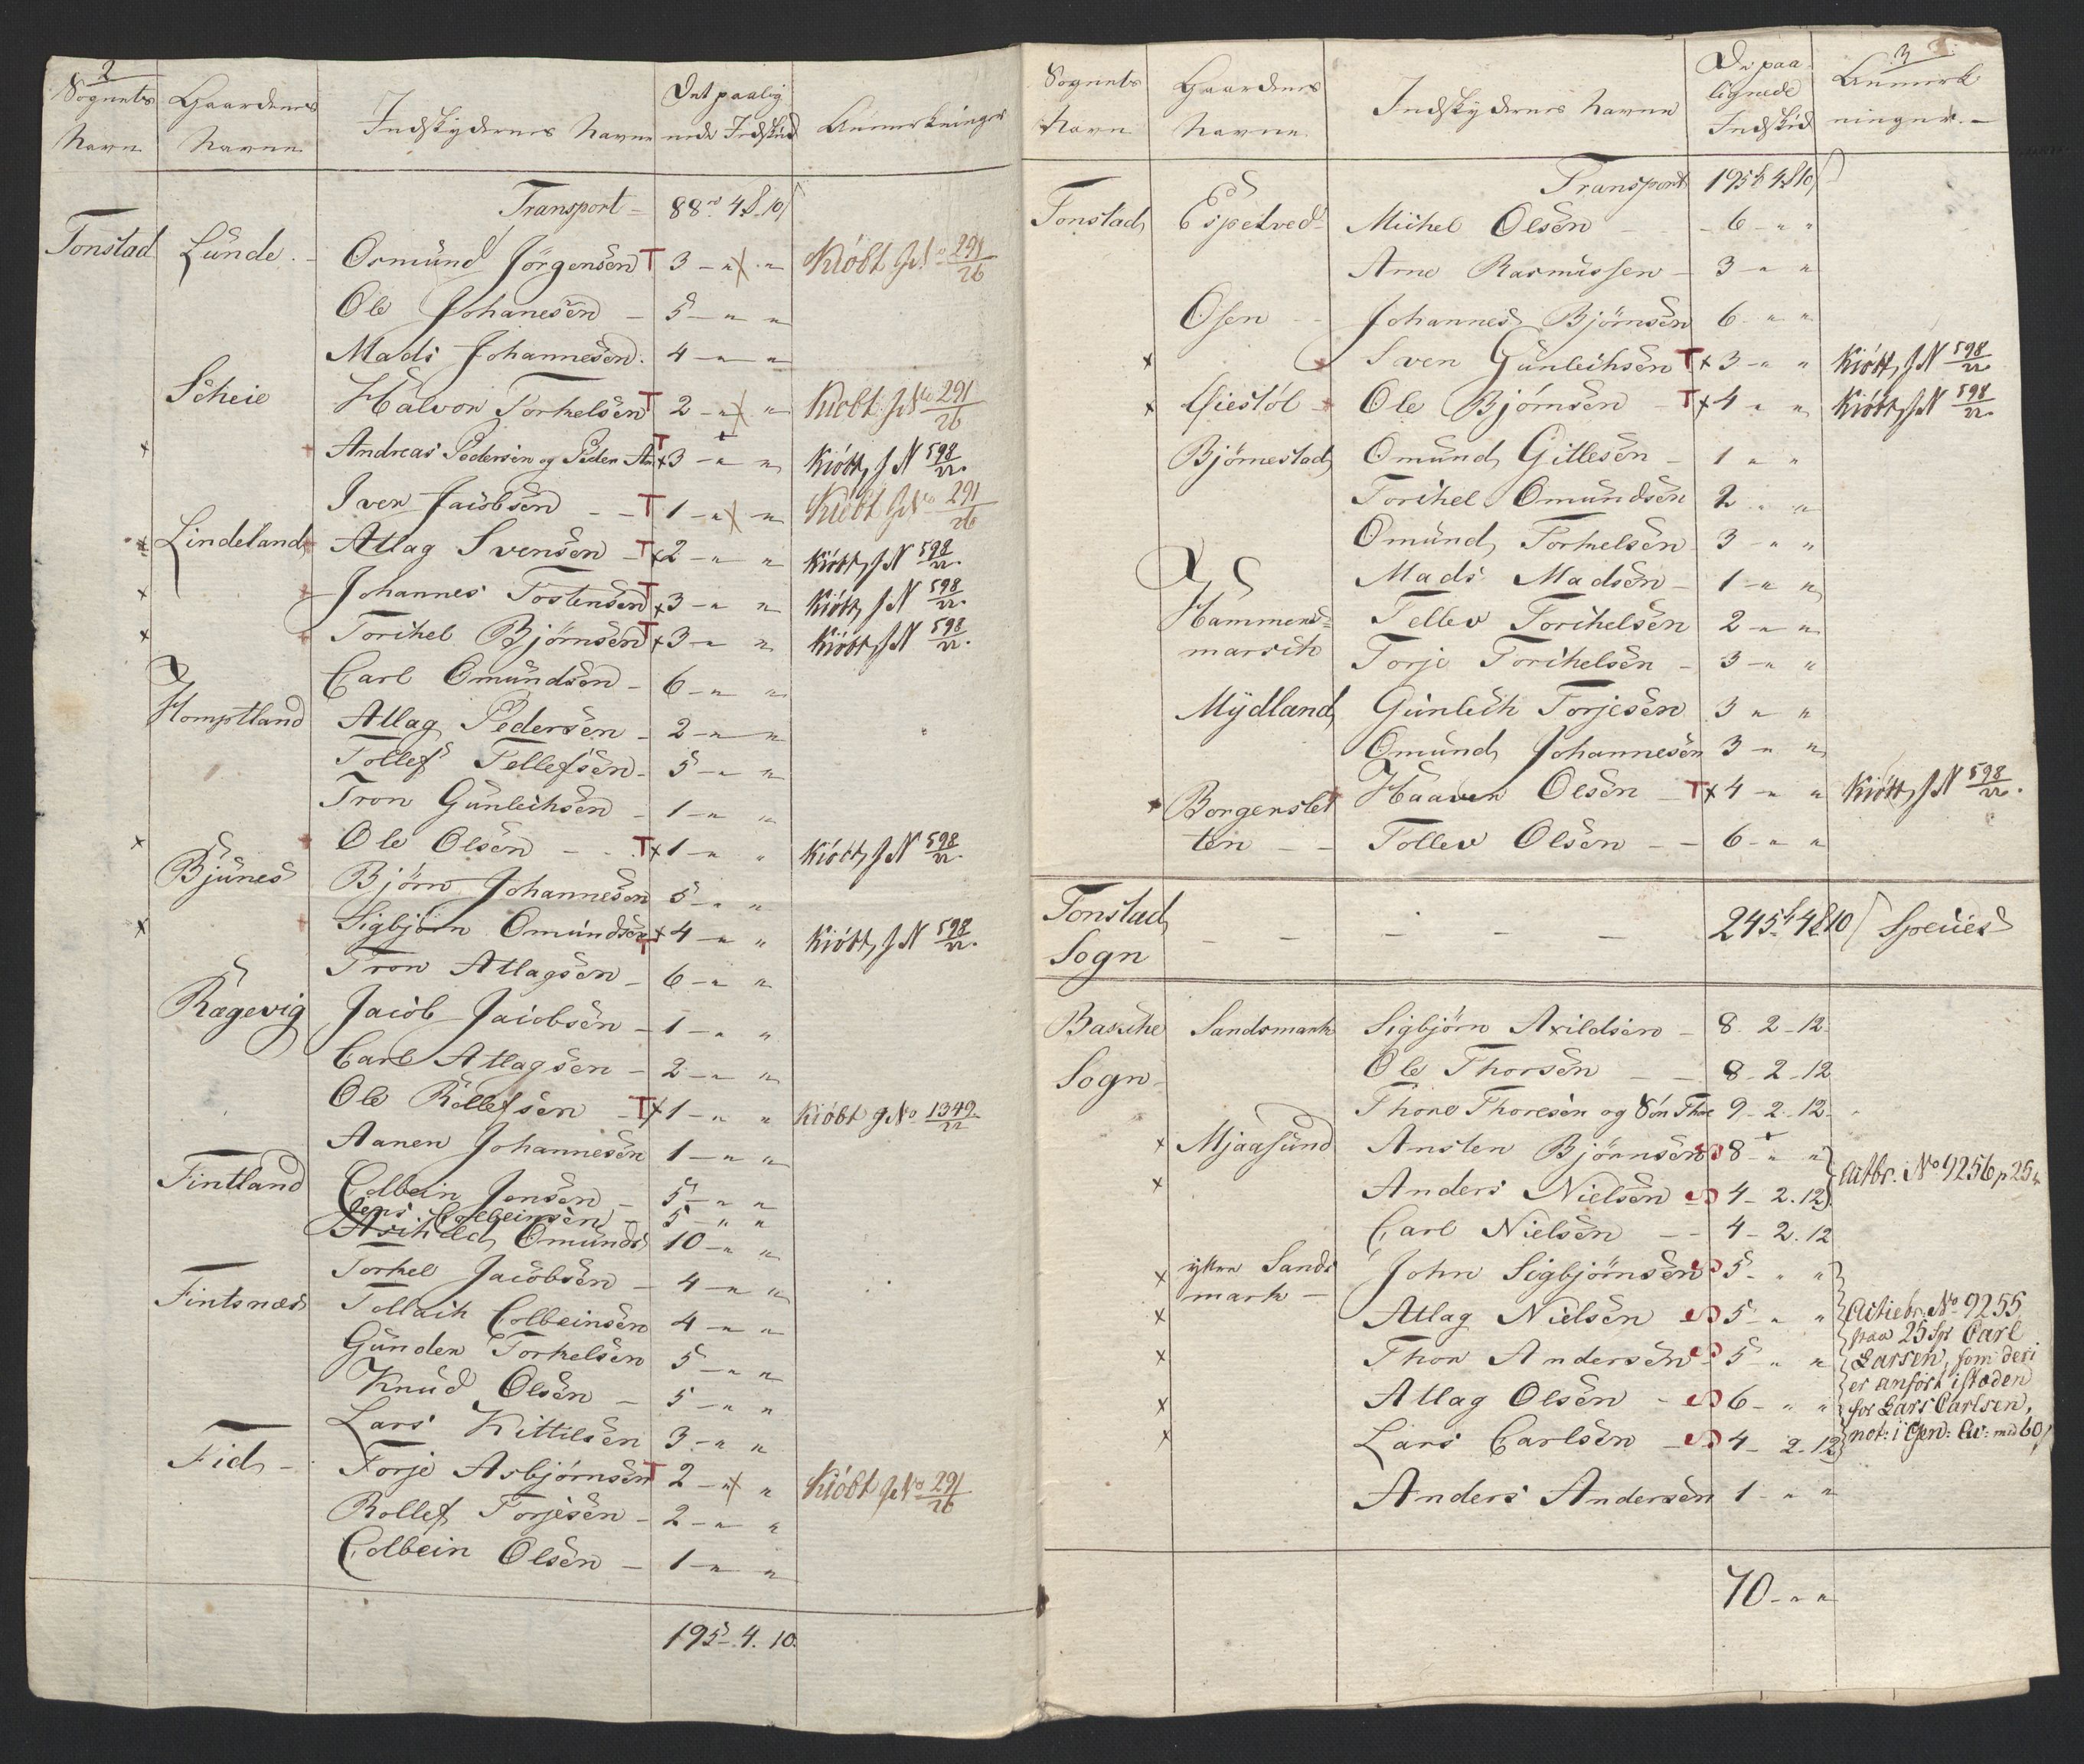 2
Sognets Navn | Gaardenes Navne | Indskydernes Navne | Det paalignede Indskud | Anmerkninger
Transport 88 4 10
Tonstad Lunde Osmund Jörgensen T 3 - " " Kiöbt J No 291/26
Ole Johanesen 5 - " "
Mads Johannesen 4 - " "
Scheie Halvor Torkelsen T 2 - " " Kiöbt J No 291/26
x Andreas Pedersen og Peder An T x 3 - " " Kiöbt J N 598/22
Iver Jacobsen T 1 - " " Kiöbt J No 291/26
x Lindeland Atlag Svensen T x 2 - " " Kiöbt J N 598/22
x Johannes Tostensen T x 3 - " " Kiöbt J N 598/22
x Torichel Björnsen T x 3 - " " Kiöbt J N 598/22
Carl Omundsen 6 - " "
Homptland Atlag Pedersen 2 - " "
Tollef Tellefsen 5 - " "
Tron Gunleichsen 1 - " "
x Ole Olsen T x 1 - " " Kiöbt J N 598/22
Bjunes Björn Johannesen 5 - " "
x Sigbjörn Omundsen T x 4 - " " Kiöbt J N 598/22
Tron Atlagsen 6 - " "
Rægevig Jacob Jacobsen 1 - " "
Carl Atlagsen 2 - " "
Ole Rollefsen T x 1 - " " Kiöbt J No 1349/22
Aanen Johannesen 1 - " "
Fintland Colbein Jensen 5 - " "
Jens Colbeinsen 5 - " "
Axeld Omunds 10 - " "
Torkel Jacobsen 4 - " "
Fintsnæs Tollach Colbeinsen 4 - " "
Gunder Torkelsen 5 - " "
Knud Olsen 5 - " "
Lars Kittilsen 3 - " "
Fid Torje Asbjörnsen T 2 - " " Kiöbt J No 291/26
Rollef Torjesen 2 - " "
Colbein Olsen 1 - " "
195 - 4. 10.
3
Sognets Navn | Gaardenes Navne | Indskydernes Navne | De paalignede Indskud | Anmerkninger
Transport 195 4 10
Tonstad Espetved Michel Olsen 6 - " "
Arne Rasmussen 3 - " "
Osen Johannes Björnsen 6 - " "
x Sven Gunleichsen T x 3 - " " Kiöbt J N 598/22
x Qiestöl Ole Björnsen T x 4 - " " Kiöbt J N 598/22
Björnestad Omund Gitlesen 1 " "
Torichel Omundsen 2 " "
Omund Torkelsen 3 - " "
Mads Madsen 1 - " "
Hammens- Tellev Torichelsen 2 - " "
march Torje Torichelsen 3 - " "
Mydland Gunleich Torjesen 3 " "
Omund Johannesen 3 - " "
x Borgenslet Haaven Olsen T x 4 - " " Kiöbt J N 598/22
ten Tollev Olsen 6 - " "
Tonstad Sogn 245 4 10 Species
Bacche Sandsmark Sigbjörn Axildsen 8 - 2 - 12
Sogn Ole Thorsen 8 - 2 - 12
Thore Thoresen og Sön Thore 9 - 2 - 12
x Mjaasund Ansten Björnsen 8 - " " Actbr. No 9256 p 25
x Anders Nielsen 4 - 2. 12
Carl Nielsen 4 - 2. 12
x yttre Sands John Sigbjörnsen 5 - " "
mark
x Atlag Nielsen 5 - " " Actiebr. No 9255
x Thor Andersen 5 - " " paa 25 Sp Carl
Larsen, som deri
x Atlag Olsen 6 - " " er anfört istæden
for Lars Carlsen,
x Lars Carlsen 4 - 2. 12 not: i Gen: med 60
Anders Andersen 1 - " "
70 - " "